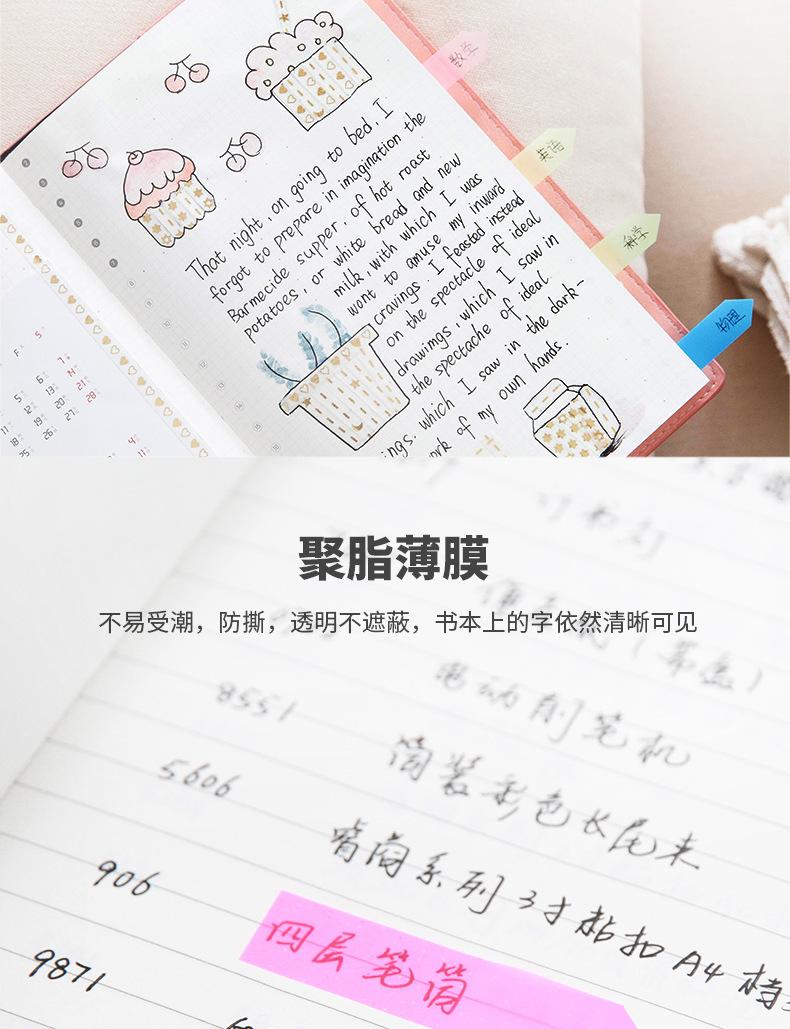 数学
英语
科学
物理
That night, on going to bed, I
forgot to prepare in imagination the
Barmecide supper, of hot roast
potatoes, or white bread and new
milk, with which I was
wont to amuse my inward
cravings. I feasted instead
on the spectacle of ideal
drawimgs, which I saw in
the spectacle of ideal
ings, which I saw in the dark-
work of my own hands.
聚脂薄膜
不易受潮，防撕，透明不遮蔽，书本上的字依然清晰可见
订书钉
电动削笔机
8551
筒装彩色长尾夹
5606
背筒系列 3寸粘扣 A4 档
906
四层笔筒
9871